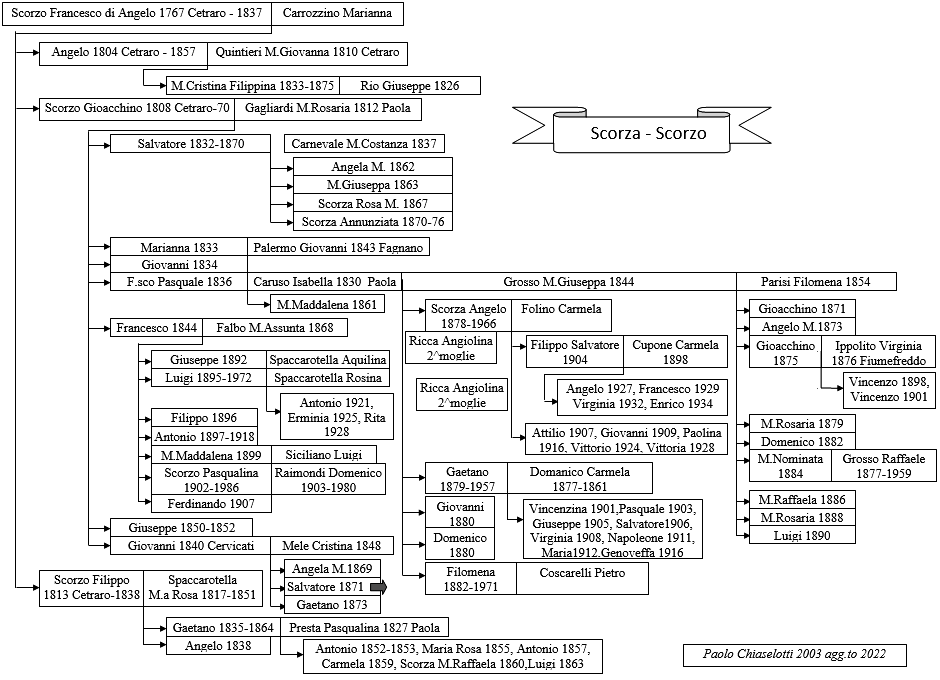 Scorzo Francesco di Angelo 1767 Cetraro - 1837 Carrozzino Marianna
Angelo 1804 Cetraro - 1857 Quintieri M.Giovanna 1810 Cetraro
M.Cristina Filippina 1833-1875 Rio Giuseppe 1826
Scorzo Gioacchino 1808 Cetraro-70 Gagliardi M.Rosaria 1812 Paola
Scorza - Scorzo
Salvatore 1832-1870 Carnevale M.Costanza 1837
Angela M. 1862
M.Giuseppa 1863
Scorza Rosa M. 1867
Scorza Annunziata 1870-76
Marianna 1833 Palermo Giovanni 1843 Fagnano
Giovanni 1834
F.sco Pasquale 1836 Caruso Isabella 1830 Paola Grosso M.Giuseppa 1844 Parisi Filomena 1854
M.Maddalena 1861
Francesco 1844 Falbo M.Assunta 1868
Giuseppe 1892 Spaccarotella Aquilina
Luigi 1895-1972 Spaccarotella Rosina
Antonio 1921,
Erminia 1925, Rita
1928
Filippo 1896
Antonio 1897-1918
M.Maddalena 1899 Siciliano Luigi
Scorzo Pasqualina
1902-1986
Raimondi Domenico
1903-1980
Ferdinando 1907
Giuseppe 1850-1852
Giovanni 1840 Cervicati Mele Cristina 1848
Angela M.1869
Salvatore 1871
Gaetano 1873
Scorza Angelo
1878-1966
Folino Carmela
Ricca Angiolina
2^moglie
Filippo Salvatore
1904
Cupone Carmela
1898
Ricca Angiolina
2^moglie
Angelo 1927, Francesco 1929
Virginia 1932, Enrico 1934
Attilio 1907, Giovanni 1909, Paolina
1916, Vittorio 1924, Vittoria 1928
Gaetano
1879-1957
Domanico Carmela
1877-1861
Giovanni
1880
Domenico
1880
Vincenzina 1901,Pasquale 1903,
Giuseppe 1905, Salvatore1906,
Virginia 1908, Napoleone 1911,
Maria1912.Genoveffa 1916
Filomena
1882-1971
Coscarelli Pietro
Gioacchino 1871
Angelo M.1873
Gioacchino
1875
Ippolito Virginia
1876 Fiumefreddo
Vincenzo 1898,
Vincenzo 1901
M.Rosaria 1879
Domenico 1882
M.Nominata
1884
Grosso Raffaele
1877-1959
M.Raffaela 1886
M.Rosaria 1888
Luigi 1890
Scorzo Filippo
1813 Cetraro-1838
Spaccarotella
M.a Rosa 1817-1851
Gaetano 1835-1864 Presta Pasqualina 1827 Paola
Angelo 1838
Antonio 1852-1853, Maria Rosa 1855, Antonio 1857,
Carmela 1859, Scorza M.Raffaela 1860,Luigi 1863
Paolo Chiaselotti 2003 agg.to 2022